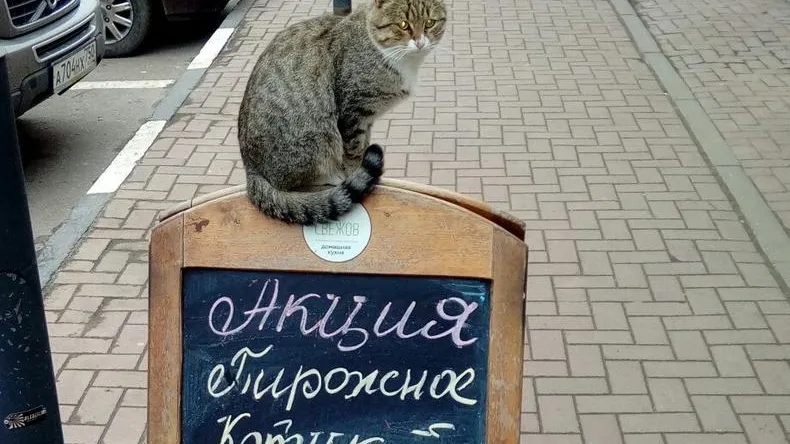 А704НХ
СВЕЖОВ
домашняя
кухня
Акция
Пирожное